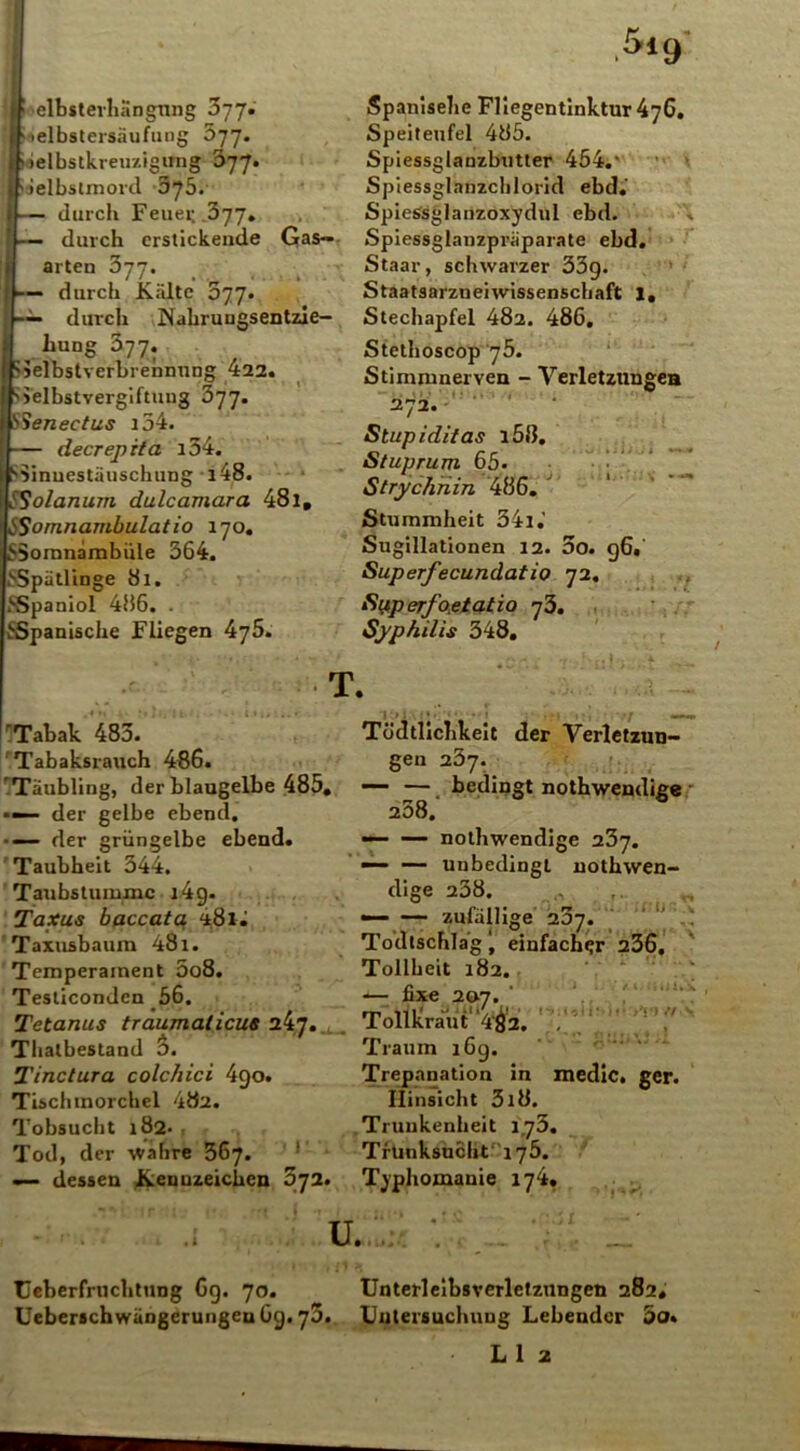 519
elbsterhängung 377.
elbstersäufung 377.
selbstkreuzigung 377.
selbstmord 375.
— durch Feuer 377.
— durch erstickende Gas-
arten 377.
— durch Kälte 377.
— durch Nahrungsentzie-
hung 377.
Selbstverbrennung 422.
Selbstvergiftung 377.
Senectus 154.
— decrepita 154.
Sinnestäuschung 148.
Solanum dulcamara 481.
Somnambulatio 170.
Somnambüle 364.
Spätlinge 81.
Spaniol 486.
Spanische Fliegen 475.
Spanische Fliegentinktur 476.
Speiteufel 485.
Spiessglanzbutter 454.
Spiessglanzchlorid ebd.
Spiessglanzoxydul ebd.
Spiessglanzpräparate ebd.
Staar, schwarzer 339.
Staatsarzneiwissenschaft 1.
Stechapfel 482. 486.
Stethoscop 75.
Stimmnerven - Verletzungen
272.
Stupiditas 158.
Stuprum 65.
Strychnin 486.
Stummheit 341.
Sugillationen 12. 30. 96.
Superfecundatio 72.
Superfoetatio 73.
Syphilis 348.
T.
Tabak 483.
Tabaksrauch 486.
Täubling, der blaugelbe 485.
— der gelbe ebend.
— der grüngelbe ebend.
Taubheit 344.
Taubstumme 149.
Taxus baccata 481.
Taxusbaum 481.
Temperament 308.
Testiconden 56.
Tetanus traumaticus 247.
Thatbestand 3.
Tinctura colchici 490.
Tischmorchel 482.
Tobsucht 182.
Tod, der wahre 367.
— dessen Kennzeichen 372.
Tödtlichkeit der Verletzun-
gen 237.
— — bedingt nothwendige
238.
— — nothwendige 237.
— — unbedingt nothwen-
dige 238.
— — zufällige 237.
Todtschlag, einfacher 236.
Tollheit 182.
— fixe 207.
Tollkraut 482.
Traum 169.
Trepanation in medic. ger.
Hinsicht 318.
Trunkenheit 173.
Trunksucht 175.
Typhomanie 174.
U.
Ueberfruchtung 69. 70.
Ueberschwängerungen 69. 73.
Unterleibsverletzungen 282.
Untersuchung Lebender 50.
L l 2